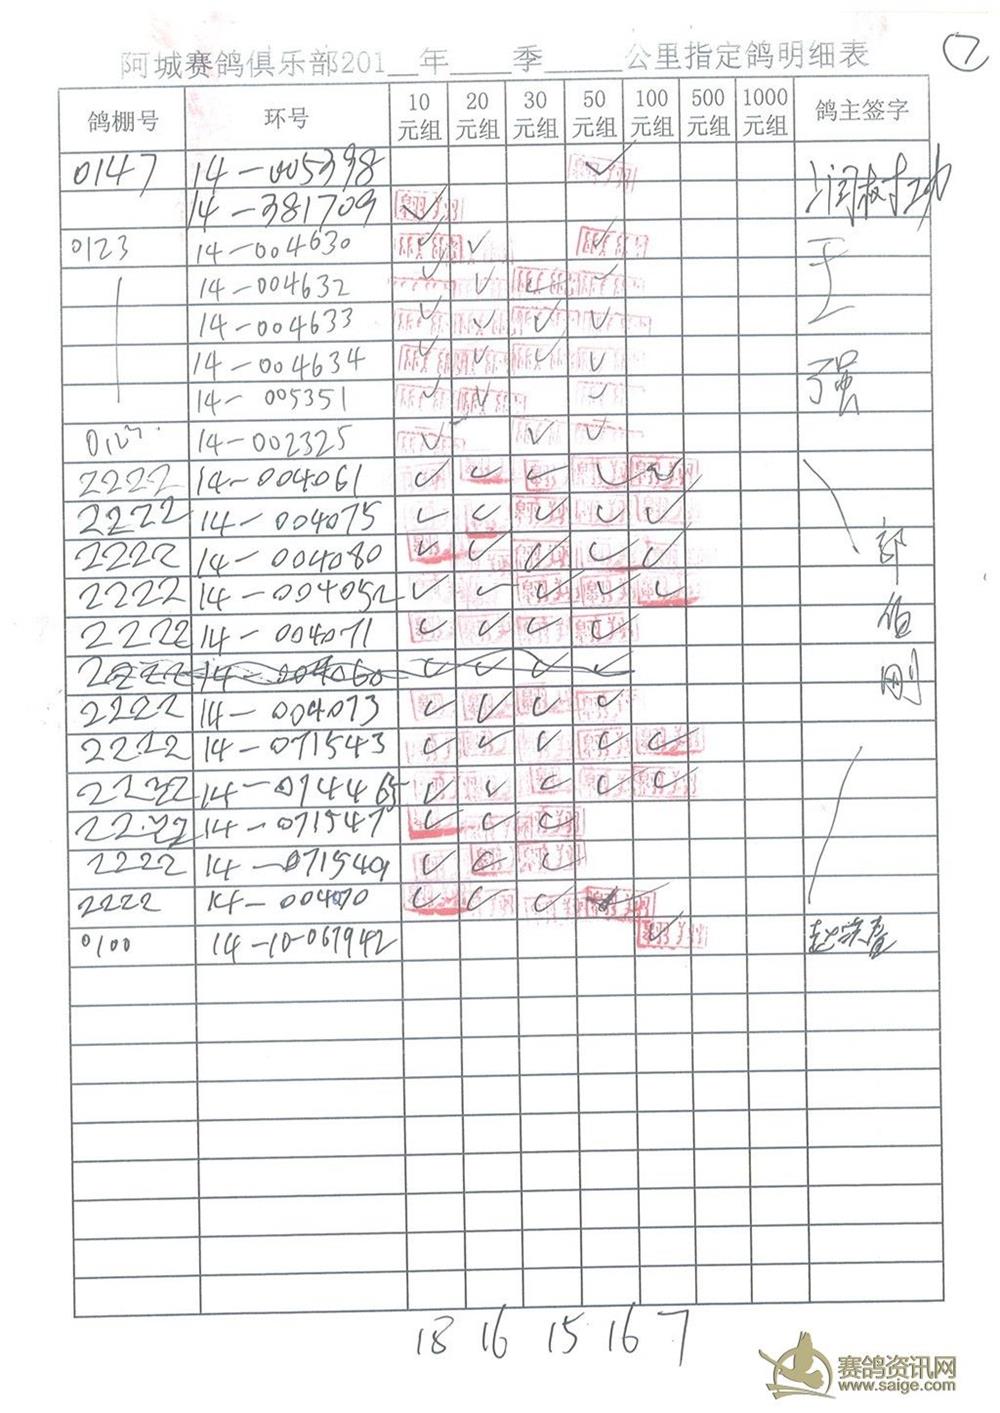 阿城赛鸽俱乐部201__年____季_____公里指定鸽明细表 7
鸽棚号 环号 10元组 20元组 30元组 50元组 100元组 500元组 1000元组 鸽主签字
0147 14-005398 ✓
14-381709 ✓
0123 14-004630 ✓ ✓ ✓ 王
14-004632 ✓ ✓ ✓ ✓
14-004633 ✓ ✓ ✓ ✓
14-004634 ✓ ✓ ✓ ✓ 强
14-005351 ✓ ✓ ✓
14-002325 ✓ ✓ ✓
2222 14-004061 ✓ ✓ ✓ ✓ ✓
2222 14-004075 ✓ ✓ ✓ ✓ ✓
2222 14-004080 ✓ ✓ ✓ ✓ ✓
2222 14-004052 ✓ ✓ ✓ ✓ ✓
2222 14-004071 ✓ ✓ ✓ ✓
2222 14-004060 ✓ ✓ ✓ ✓ 刚
2222 14-004073 ✓ ✓ ✓ ✓
2222 14-071543 ✓ ✓ ✓ ✓ ✓
2222 14-074465 ✓ ✓ ✓ ✓ ✓
2222 14-071547 ✓ ✓ ✓
2222 14-071549 ✓ ✓ ✓
2222 14-004070 ✓ ✓ ✓
0100 14-10-067942 ✓
18 16 15 16 7
赛鸽资讯网
www.saige.com